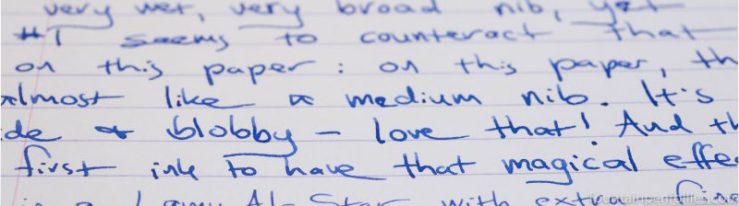 very wet, very broad nib, yet
#1 seems to counteract that
on this paper: on this paper, th
almost like a medium nib. It's
de or blobby - love that! And th
first ink to have that magical effe
in a Lamy Al-Star with extra fine